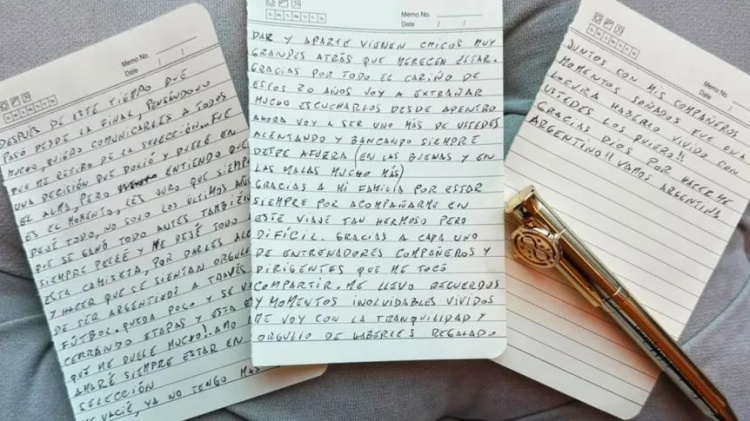 Memo No.
Date / /
DESPUÉS DE ESTE TIEMPO QUE
PASÓ DESDE LA FINAL, PENSÁNDOLO
MUCHO, QUIERO COMUNICARLES A TODOS
QUE ME RETIRO DE LA SELECCIÓN. FUE
UNA DECISIÓN QUE DOLIÓ Y DUELE EN
EL ALMA, PERO ENTIENDO QUE
ES EL MOMENTO, LES JURO QUE SIEMPRE
DEJÉ TODO, NO SOLO LOS ÚLTIMOS AÑOS
QUE SE GANÓ TODO ANTES TAMBIÉN
SIEMPRE PELEÉ Y ME DEJÉ TODO
ESTA CAMISETA, POR DARLES
Y HACER QUE SE SIENTAN
DE SER ARGENTINOS A TRAVÉS
FÚTBOL. QUEDA POCO Y SE
CERRANDO ETAPAS Y ESTA ES
QUE ME DUELE MUCHO! AMO
AMARÉ SIEMPRE ESTAR EN
SELECCIÓN
ME VACIÉ, YA NO TENGO MÁS
Memo No.
Date / /
DAR Y APARTE VIENEN CHICOS MUY
GRANDES ATRÁS QUE MERECEN ESTAR.
GRACIAS POR TODO EL CARIÑO DE
ESTOS 20 AÑOS VOY A EXTRAÑAR
MUCHO ESCUCHARLOS DESDE ADENTRO
AHORA VOY A SER UNO MÁS DE USTEDES
ALENTANDO Y BANCANDO SIEMPRE
DESDE AFUERA (EN LAS BUENAS Y EN
LAS MALAS MUCHO MÁS)
GRACIAS A MI FAMILIA POR ESTAR
SIEMPRE POR ACOMPAÑARME EN
ESTE VIAJE TAN HERMOSO PERO
DIFÍCIL. GRACIAS A CADA UNO
DE ENTRENADORES COMPAÑEROS Y
DIRIGENTES QUE ME TOCÓ
COMPARTIR. ME LLEVO RECUERDOS
Y MOMENTOS INOLVIDABLES VIVIDOS
ME VOY CON LA TRANQUILIDAD Y
ORGULLO DE HABERLES REGALADO
Memo No.
Date / /
JUNTOS CON MIS COMPAÑEROS
MOMENTOS SOÑADOS FUE UNA
LOCURA HABERLO VIVIDO CON
USTEDES LOS QUIERO!!
GRACIAS DIOS POR HACERME
ARGENTINO!! VAMOS ARGENTINA